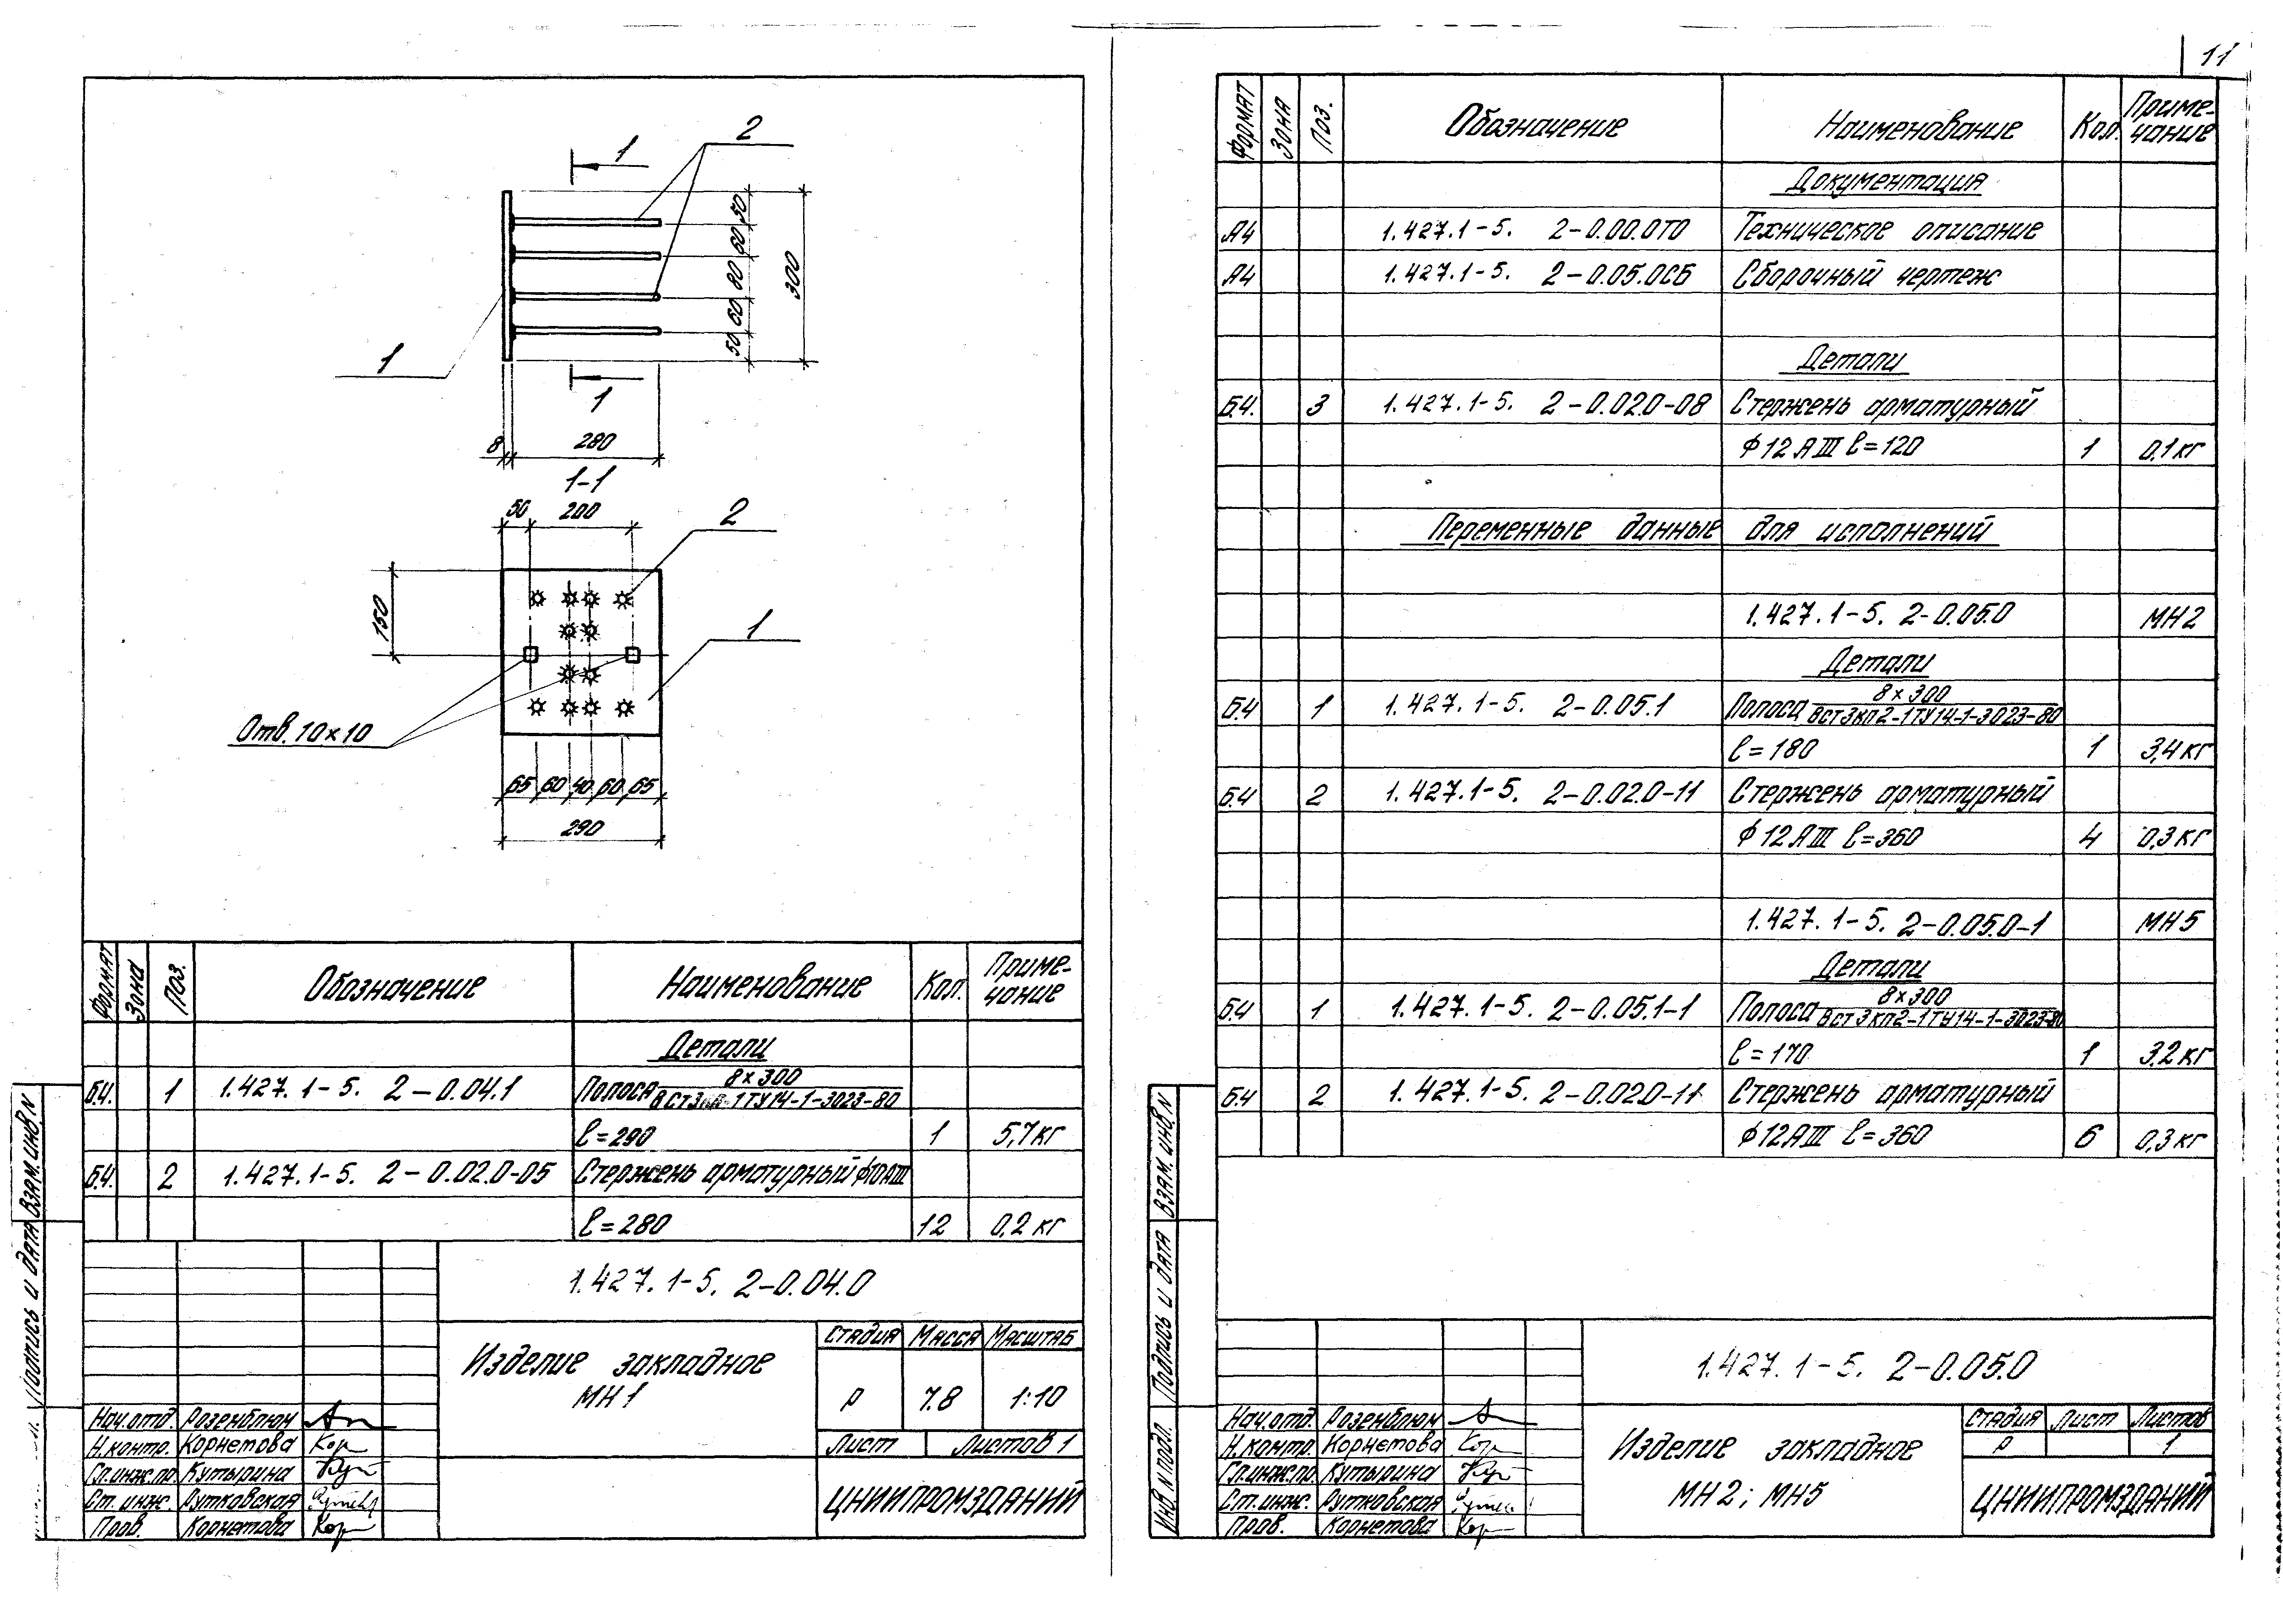 11
1
2
50
60
80
60
50
300
1
1
8
280
1-1
50
200
2
150
1
Отв. 10×10
65 60 40 60 65
290
Формат Зона Поз. Обозначение Наименование Кол. Приме-
чание
Детали
Б.4. 1 1.427.1-5. 2-0.04.1 Полоса 8×300
ВСт3кп2-1ТУ14-1-3023-80
ℓ=290 1 5,7кг
Б.4. 2 1.427.1-5. 2-0.02.0-05 Стержень арматурный ф10АIII
ℓ=280 12 0,2 кг
1.427.1-5. 2-0.04.0
Изделие закладное
МН1
Стадия Масса Масштаб
Р 7.8 1:10
Лист Листов 1
ЦНИИПРОМЗДАНИЙ
Нач.отд. Розенблюм
Н.контр. Корнетова Кор
Гл.инж.пр. Кутырина Кут
Ст. инж. Рутковская
Пров. Корнетова Кор
Взам.инв.N
Подпись и дата
Формат Зона Поз. Обозначение Наименование Кол. Приме-
чание
Документация
А4 1.427.1-5. 2-0.00.0ТО Техническое описание
А4 1.427.1-5. 2-0.05.0СБ Сборочный чертеж
Детали
Б.4. 3 1.427.1-5. 2-0.02.0-08 Стержень арматурный
ф12АIII ℓ=120 1 0,1кг
Переменные данные для исполнений
1.427.1-5. 2-0.05.0 МН2
Детали
Б.4 1 1.427.1-5. 2-0.05.1 Полоса 8×300
ВСт3кп2-1ТУ14-1-3023-80
ℓ=180 1 3,4кг
Б.4 2 1.427.1-5. 2-0.02.0-11 Стержень арматурный
ф12АIII ℓ=360 4 0,3кг
1.427.1-5. 2-0.05.0-1 МН5
Детали
Б.4 1 1.427.1-5. 2-0.05.1-1 Полоса 8×300
ВСт3кп2-1ТУ14-1-3023-80
ℓ=170 1 3.2кг
Б.4 2 1.427.1-5. 2-0.02.0-11 Стержень арматурный
ф12АIII ℓ=360 6 0,3кг
1.427.1-5. 2-0.05.0
Изделие закладное
МН2; МН5
Стадия Лист Листов
Р 1
ЦНИИПРОМЗДАНИЙ
Нач.отд. Розенблюм
Н.контр. Корнетова Кор
Гл.инж.пр. Кутырина Кут
Ст.инж. Рутковская
Пров. Корнетова Кор
Взам.инв.N
Подпись и дата
Инв.N подл.